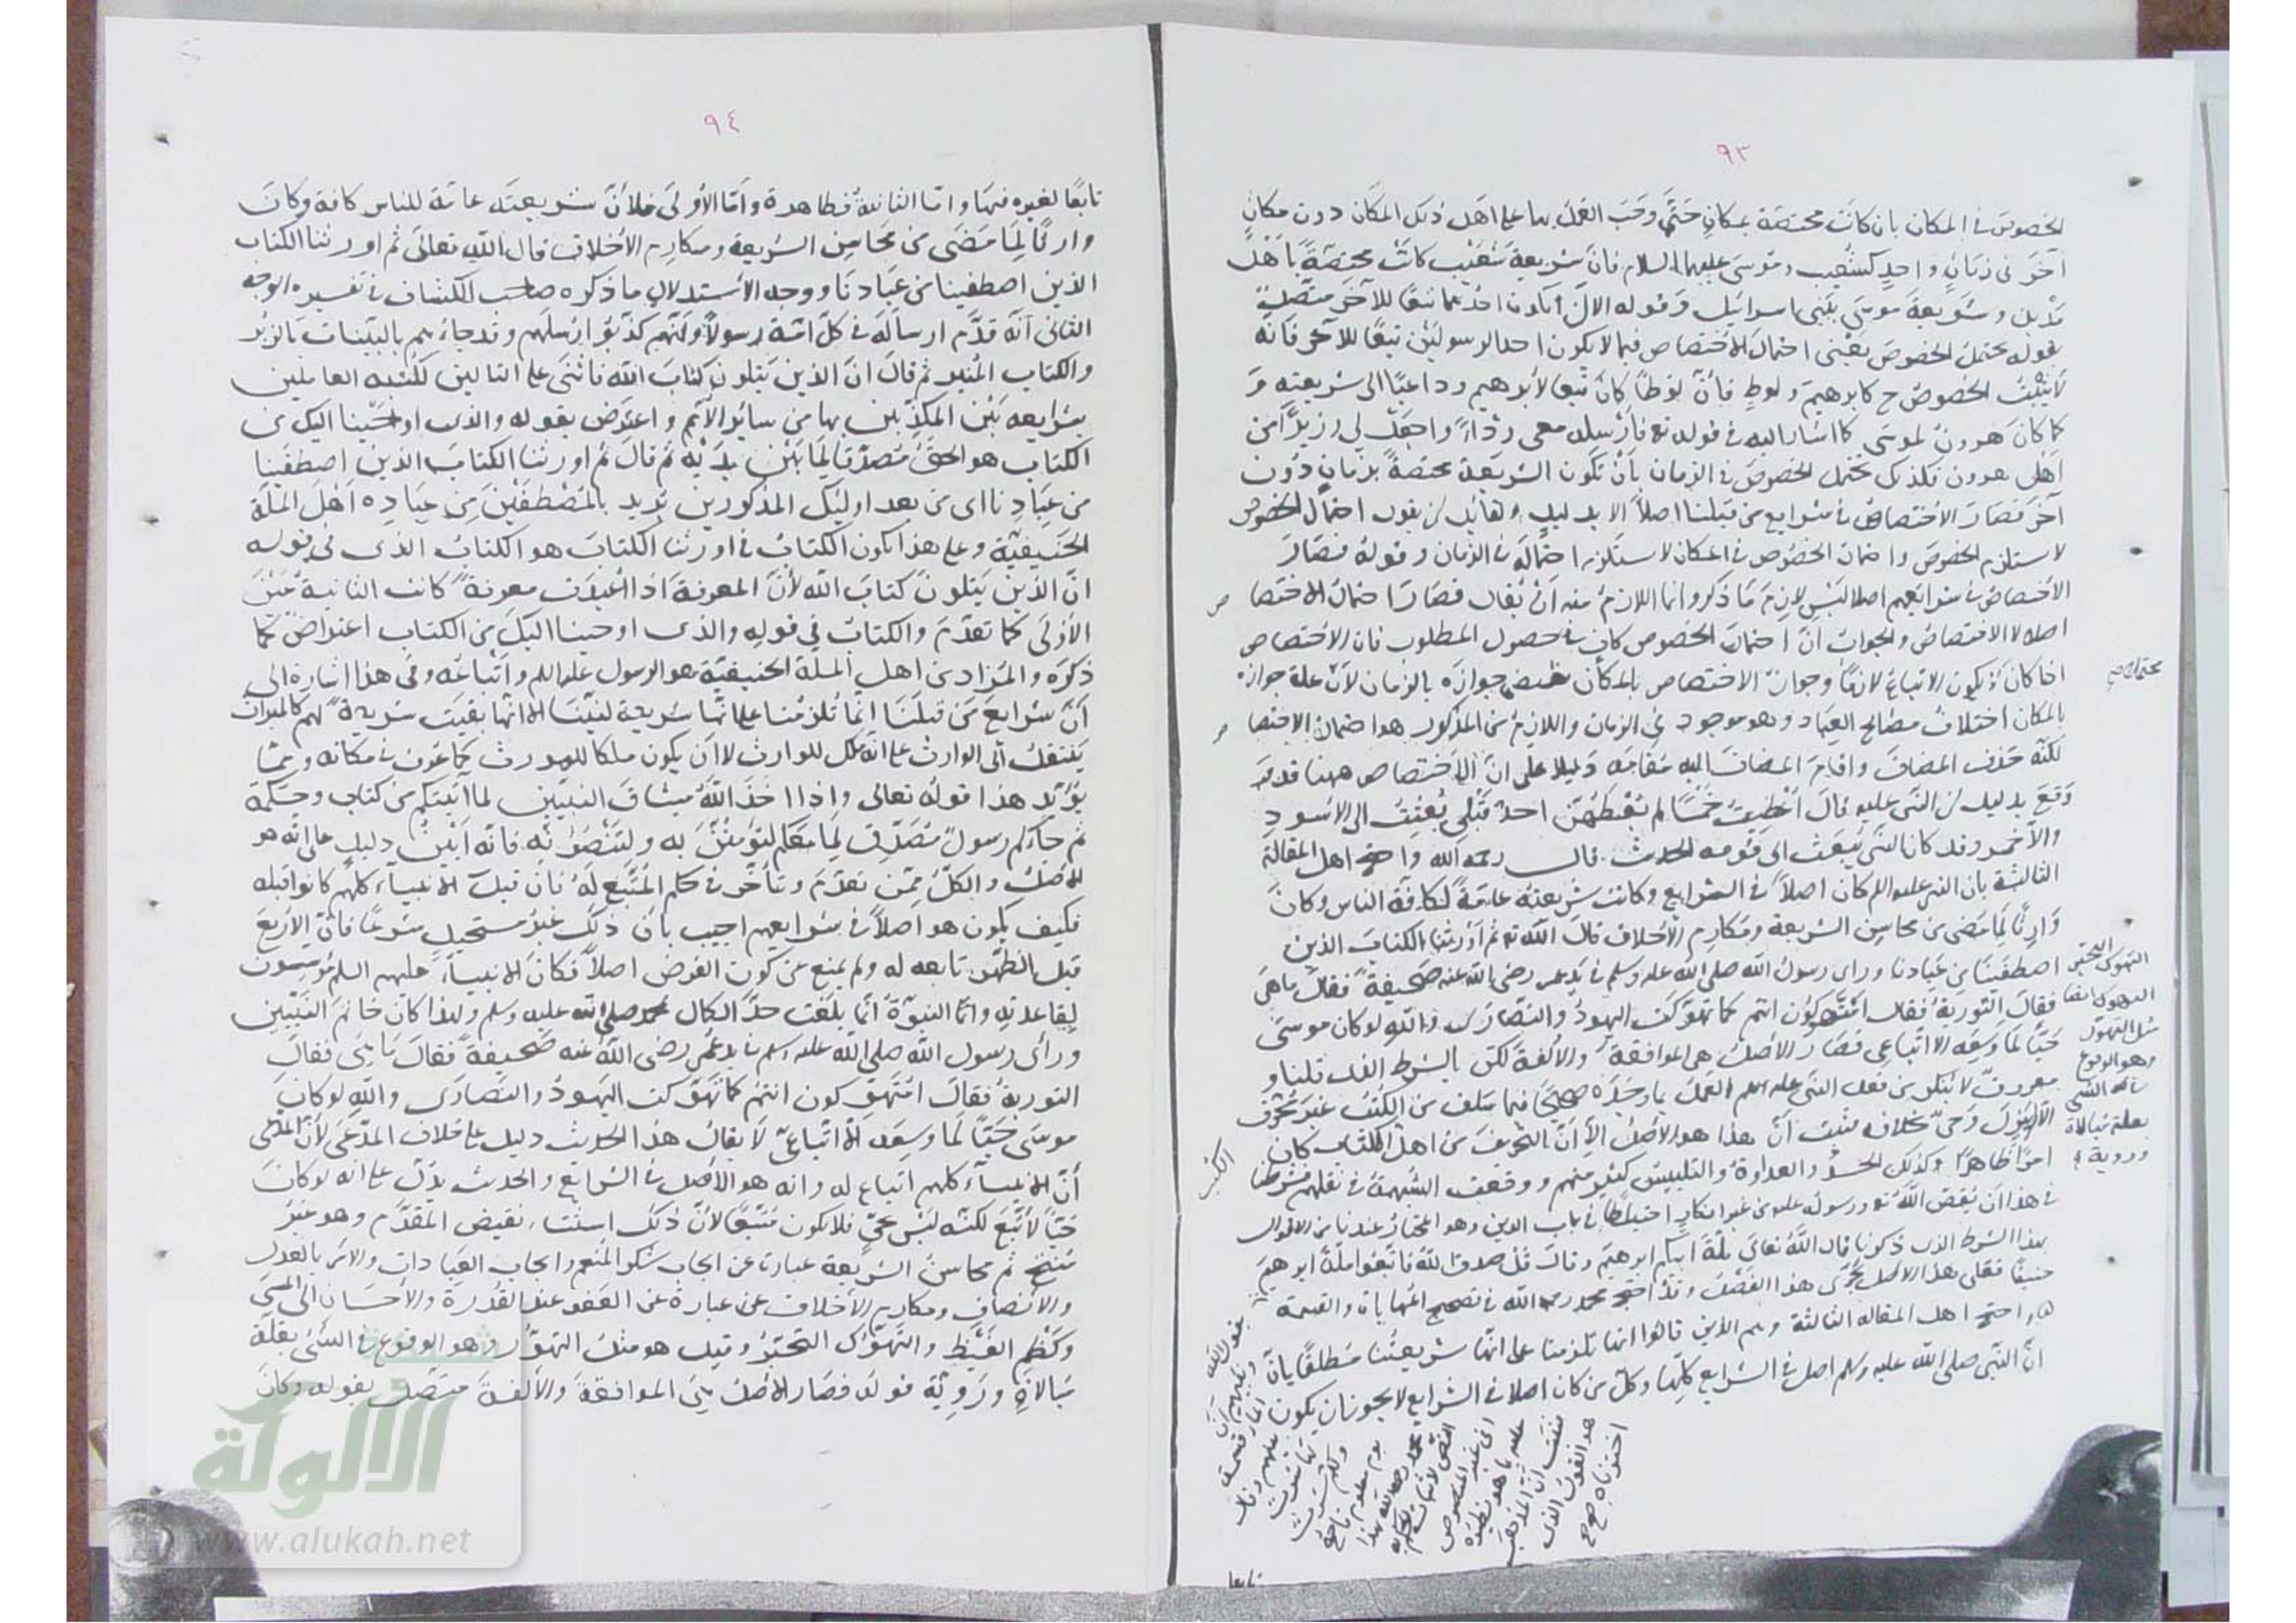 ٩٣
الخصوص في المكان بان كانت مختصة بمكانٍ حتى وجب العمل بها على اهل ذلك المكان دون مكانٍ
آخر في زمانٍ واحدٍ كشعيب وموسى عليهما السلام فان شريعة شعيب كانت مختصة باهل
مدين وشريعة موسى ببني اسرائيل وقوله الا ان يكون احدهما تبعًا للآخر متصل
بقوله يحتمل الخصوص يعني احتمال الاختصاص فيما لا يكون احد الرسولين تبعًا للآخر فانه
لا يثبت الخصوص ح كابرهيم ولوط فان لوطًا كان تبعا لابرهيم وداعيًا الى شريعته و
كما كان هرون لموسى كما اشار اليه في قوله تع فارسله معي ردءًا واجعل لي وزيرًا من
اهلي هرون فكذلك يحتمل الخصوص في الزمان بان تكون الشريعة مختصة بزمانٍ دون
آخر فصار الاختصاص في شرايع من قبلنا اصلاً الا بدليلٍ ولقائل ان يقول احتمال الخصوص
لا يستلزم الخصوص واحتمال الخصوص في المكان لا يستلزم احتماله في الزمان وقوله فصار
الاختصاص في شرايعهم اصلا ليس لازم ما ذكر وانما اللازم منه ان يقال فصار احتمال الاختصا ص
اصلا لا الاختصاص والجواب ان احتمال الخصوص كاف في حصول المطلوب فان الاختصاص
اذا كان لا يكون الاتباع لازمًا وجواز الاختصاص بالمكان جوازه بالزمان لان علة جوازه
بالمكان اختلاف مصالح العباد وهو موجود في الزمان واللازم من المذكور هو احتمال الاختصا ص
لكنه حذف المضاف واقام المضاف اليه مقامه دليلا على ان الاختصاص ههنا قد
وقع بدليل ان النبي عليه قال اعطيت خمسًا لم يعطهن احد قبلي بعثت الى الاسود
والاحمر وقد كان النبي يبعث الى قومه الحديث قال رحمه الله واحتج اهل المقالة
الثالثة بان النبي عليه السلام كان اصلاً في الشرايع وكانت شريعته عامة لكافة الناس وكان
وارثًا لما مضى من محاسن الشريعة ومكارم الاخلاق قال الله تع ثم اورثنا الكتاب الذين
اصطفينا من عبادنا وراى رسول الله صلى الله عليه وسلم في يد عمر رضي الله عنه صحيفة فقال ما هي
فقال التورية فقال امتهوكون انتم كما تهوكت اليهود والنصارى والله لو كان موسى
حيًا لما وسعه الا اتباعي فصار الاصل هي الموافقة والالفة لكن بالشرط الذي قلنا و
معروف لا ينكر من فعل النبي عليه السلم العمل بما وجده صحيحًا فيما سلف من الكتب غير محرف
الا ان ينزل وحي بخلافه فثبت ان هذا هو الاصل الا ان التحريف من اهل الكتاب كان
امرًا ظاهرًا وكذلك الحسد والعداوة والتلبيس كثير منهم ووقعت الشبهة في نقلهم فشرطنا
في هذا ان يقص الله تع ورسوله عليه من غير انكارٍ احتياطًا في باب الدين وهو المختار عندنا من الاقوال
بهذا الشرط الذي ذكرنا قال الله تعالى ملة ابيكم ابرهيم وقال قل صدق الله فاتبعوا ملة ابرهيم
حنيفًا فعلى هذا الاصل يجري هذا الفصل وقد احتج محمد رحمه الله في تصحيح المهاياة والقسمة
احتج اهل المقالة الثالثة وهم الذين قالوا انها تلزمنا على انها شريعتنا مطلقًا بان
ان النبي صلى الله عليه وسلم اصل في الشرايع كلها وكل من كان اصلا في الشرايع لا يجوز ان يكون
التهوك التحير
مثل التهور
وهو الوقوع
في الشيء
بقلة مبالاة
وروية
الكتب
بقول الله
ونبئهم ان
الماء قسمة
بينهم وقال
لها شرب
ولكم شرب
يوم معلوم فاحتج
محمد رحمه الله بهذا
النص لاثبات الحكم به
في غير المنصوص
عليه بما هو نظيره
فثبت ان المذهب
هو القول الذي
اخترناه صح
تابعا
٩٤
تابعًا لغيره فيها واما الثانية فظاهرة واما الاولى فلان شريعته عامة للناس كافة وكان
وارثًا لما مضى من محاسن الشريعة ومكارم الاخلاق قال الله تعالى ثم اورثنا الكتاب
الذين اصطفينا من عبادنا ووجه الاستدلال ما ذكره صاحب الكشاف في تفسيره الوجه
الثاني انه قدم ارساله في كل امة رسولاً وانهم كذبوا رسلهم وقد جاؤهم بالبينات والزبر
والكتاب المنير ثم قال ان الذين يتلون كتاب الله فاثنى على التالين لكتبه العاملين
بشرايعه بين المكذبين بها من سائر الامم واعترض بقوله والذي اوحينا اليك من
الكتاب هو الحق مصدقا لما بين يديه ثم قال ثم اورثنا الكتاب الذين اصطفينا
من عبادنا اى من بعد اوليك المذكورين يريد بالمصطفين من عباده اهل الملة
الحنيفية وعلى هذا يكون الكتاب في اورثنا الكتاب هو الكتاب الذي في قوله
ان الذين يتلون كتاب الله لان المعرفة اذا اعيدت معرفة كانت الثانية عين
الاولى كما تقدم والكتاب في قوله والذي اوحينا اليك من الكتاب اعتراض كما
ذكره والمراد من اهل الملة الحنيفية هو الرسول عليه السلم واتباعه وفي هذا اشارة الى
ان شرايع من قبلنا انما تلزمنا على انها شريعة لنبينا لا انها بقيت شريعة لهم كالميراث
ينتقل الى الوارث على انه ملك للوارث لا ان يكون ملكا للمورث كما عرف في مكانه ومما
يؤيد هذا قوله تعالى واذ اخذ الله ميثاق النبيين لما آتيتكم من كتاب وحكمة
ثم جاءكم رسول مصدق لما معكم لتؤمنن به ولتنصرنه فانه ابين دليل على انه هو
الاصل والكل ممن تقدم وتأخر في حكم المتبع له فان قيل الانبياء كلهم كانوا قبله
فكيف يكون هو اصلاً في شرايعهم اجيب بان ذلك غير مستحيل شرعًا فان الاربع
قبل الظهر تابعة له ولم يمنع عن كون الفرض اصلاً فكان الانبياء عليهم السلم مؤسسون
لقاعدته وانما النبوة انما بلغت حد الكمال بمحمد صلى الله عليه وسلم ولهذا كان خاتم النبيين
وراى رسول الله صلى الله عليه وسلم في يد عمر رضي الله عنه صحيفة فقال ما هي فقال
التورية فقال امتهوكون انتم كما تهوكت اليهود والنصارى والله لو كان
موسى حيًا لما وسعه الا اتباعي لا يقال هذا الحديث دليل على خلاف المدعى لان المدعى
أن الانبياء كلهم اتباع له وانه هو الاصل في الشرايع والحديث يدل على انه لو كان
حيًا لاتبع لكنه ليس بحي فلا يكون متبعًا لان ذلك استثناء نقيض المقدم وهو غير
منتج ثم محاسن الشريعة عبارة عن ايجاب شكر المنعم وايجاب العبادات والامر بالعدل
والانصاف ومكارم الاخلاق عن عبارة عن العفو عند القدرة والاحسان الى المسيء
وكظم الغيظ والتهوك التحير وقيل هو مثل التهور وهو الوقوع في الشيء بقلة
مبالاة وروية قوله فصار الاصل هي الموافقة والالفة متصل بقوله وكان
شبكة
الألوكة
www.alukah.net